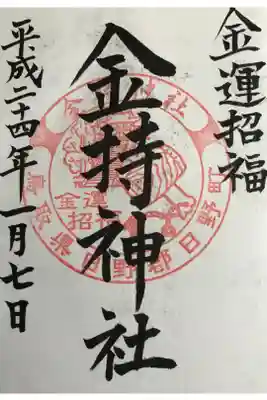 金運招福
金持神社
平成二十四年一月七日
金運
招福
鳥取県日野郡日野町